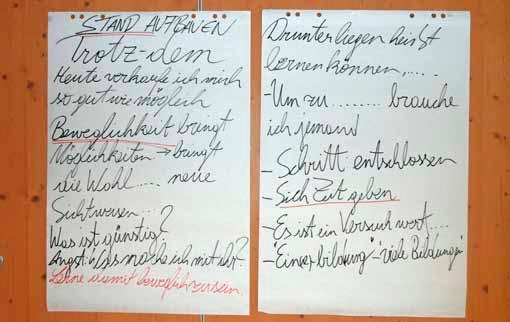 STAND AUFBAUEN
Trotz-dem
Heute verkaufe ich mich
so gut wie möglich
Beweglichkeit bringt
Möglichkeiten → bringt
die Wahl..... neue
Sichtweisen...?
Was ist günstig?
Angst: Was mache ich mit ihr?
Lerne damit beweglich zu sein.
Drunterliegen heißt
lernen können,.....
- Um zu ........ brauche
ich jemand
- Schritt entschlossen
- Sich Zeit geben
- Es ist ein Versuch wert....
- "Ein(e) bildung" - "viele Bildungen"